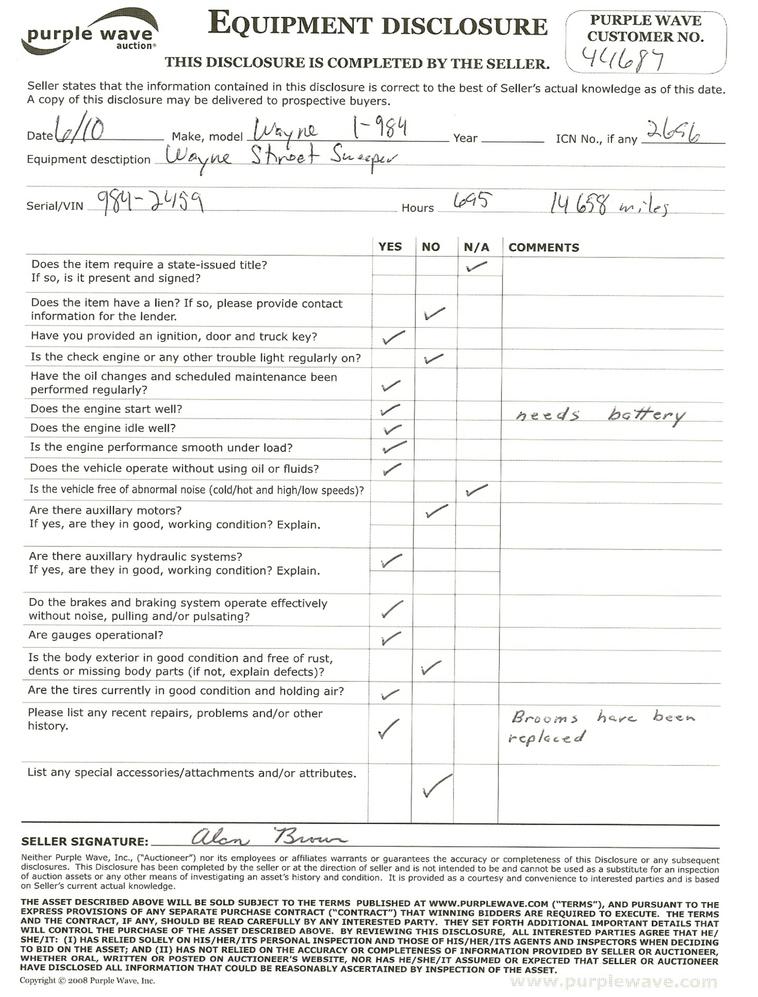 purple wave
auction®
EQUIPMENT DISCLOSURE
THIS DISCLOSURE IS COMPLETED BY THE SELLER.
PURPLE WAVE
CUSTOMER NO.
44687
Seller states that the information contained in this disclosure is correct to the best of Seller's actual knowledge as of this date.
A copy of this disclosure may be delivered to prospective buyers.
Date 6/10 Make, model Wayne 1-984 Year ICN No., if any 2696
Equipment desctiption Wayne Street Sweeper
Serial/VIN 984-2459 Hours 695 14698 miles
YES NO N/A COMMENTS
Does the item require a state-issued title? ✓
If so, is it present and signed?
Does the item have a lien? If so, please provide contact
information for the lender. ✓
Have you provided an ignition, door and truck key? ✓
Is the check engine or any other trouble light regularly on? ✓
Have the oil changes and scheduled maintenance been
performed regularly? ✓
Does the engine start well? ✓ needs battery
Does the engine idle well? ✓
Is the engine performance smooth under load? ✓
Does the vehicle operate without using oil or fluids? ✓
Is the vehicle free of abnormal noise (cold/hot and high/low speeds)? ✓
Are there auxillary motors? ✓
If yes, are they in good, working condition? Explain.
Are there auxillary hydraulic systems? ✓
If yes, are they in good, working condition? Explain.
Do the brakes and braking system operate effectively
without noise, pulling and/or pulsating? ✓
Are gauges operational? ✓
Is the body exterior in good condition and free of rust,
dents or missing body parts (if not, explain defects)? ✓
Are the tires currently in good condition and holding air? ✓
Please list any recent repairs, problems and/or other Brooms have been
history. ✓ replaced
List any special accessories/attachments and/or attributes. ✓
SELLER SIGNATURE: Alan Brown
Neither Purple Wave, Inc., ("Auctioneer") nor its employees or affiliates warrants or guarantees the accuracy or completeness of this Disclosure or any subsequent
disclosures. This Disclosure has been completed by the seller or at the direction of seller and is not intended to be and cannot be used as a substitute for an inspection
of auction assets or any other means of investigating an asset's history and condition. It is provided as a courtesy and convenience to interested parties and is based
on Seller's current actual knowledge.
THE ASSET DESCRIBED ABOVE WILL BE SOLD SUBJECT TO THE TERMS PUBLISHED AT WWW.PURPLEWAVE.COM ("TERMS"), AND PURSUANT TO THE
EXPRESS PROVISIONS OF ANY SEPARATE PURCHASE CONTRACT ("CONTRACT") THAT WINNING BIDDERS ARE REQUIRED TO EXECUTE. THE TERMS
AND THE CONTRACT, IF ANY, SHOULD BE READ CAREFULLY BY ANY INTERESTED PARTY. THEY SET FORTH ADDITIONAL IMPORTANT DETAILS THAT
WILL CONTROL THE PURCHASE OF THE ASSET DESCRIBED ABOVE. BY REVIEWING THIS DISCLOSURE, ALL INTERESTED PARTIES AGREE THAT HE/
SHE/IT: (I) HAS RELIED SOLELY ON HIS/HER/ITS PERSONAL INSPECTION AND THOSE OF HIS/HER/ITS AGENTS AND INSPECTORS WHEN DECIDING
TO BID ON THE ASSET; AND (II) HAS NOT RELIED ON THE ACCURACY OR COMPLETENESS OF INFORMATION PROVIDED BY SELLER OR AUCTIONEER,
WHETHER ORAL, WRITTEN OR POSTED ON AUCTIONEER'S WEBSITE, NOR HAS HE/SHE/IT ASSUMED OR EXPECTED THAT SELLER OR AUCTIONEER
HAVE DISCLOSED ALL INFORMATION THAT COULD BE REASONABLY ASCERTAINED BY INSPECTION OF THE ASSET.
Copyright © 2008 Purple Wave, Inc.
www.purplewave.com